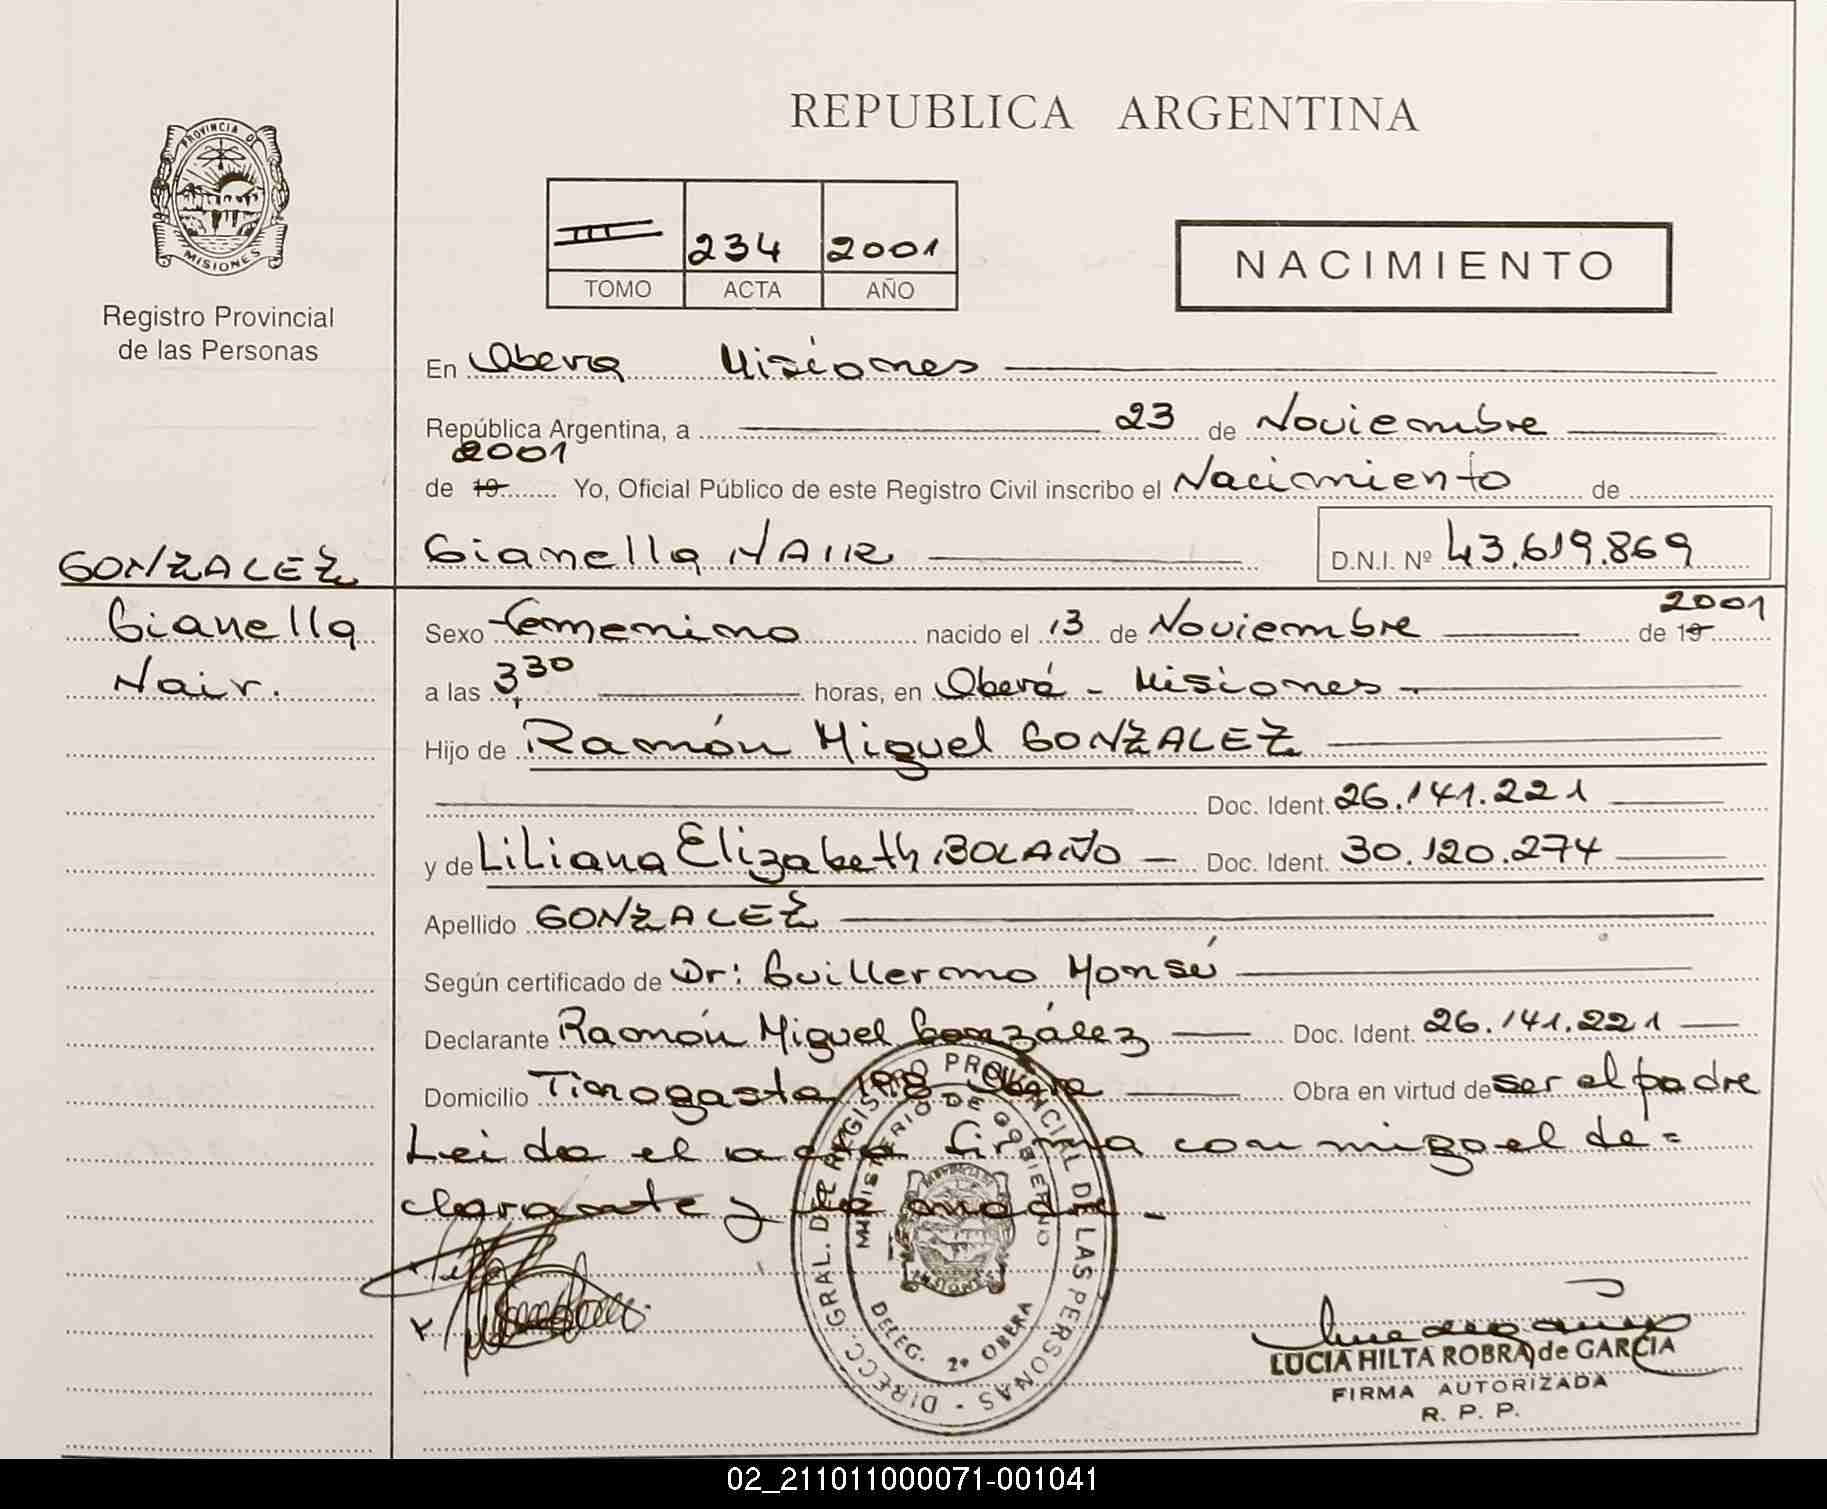 REPUBLICA ARGENTINA
PROVINCIA DE
MISIONES
Registro Provincial
de las Personas
234 2001
TOMO ACTA AÑO
NACIMIENTO
En Obera Misiones
República Argentina, a 23 de Noviembre
2001
de 19 Yo, Oficial Público de este Registro Civil inscribo el Nacimiento de
Gianella NAIR D.N.I. Nº 43.619.869
GONZALEZ
Gianella
Nair.
Sexo femenino nacido el 13 de Noviembre de 19 2001
a las 3,30 horas, en Oberá - Misiones
Hijo de Ramón Miguel GONZALEZ
Doc. Ident. 26.141.221
y de Liliana Elizabeth BOLAÑO Doc. Ident. 30.120.274
Apellido GONZALEZ
Según certificado de Dr: Guillermo Monsú
Declarante Ramón Miguel González Doc. Ident. 26.141.221
Domicilio Tinogasta Obera Obra en virtud de ser el padre
Leida el acta firma conmigo el de=
clarante y la madre -
DIRECC. GRAL. DEL REGISTRO PROVINCIAL DE LAS PERSONAS
MINISTERIO DE GOBIERNO
PROVINCIA DE
MISIONES
DELEG. 2ª OBERA
LUCIA HILTA ROBRA de GARCIA
FIRMA AUTORIZADA
R. P. P.
02_211011000071-001041